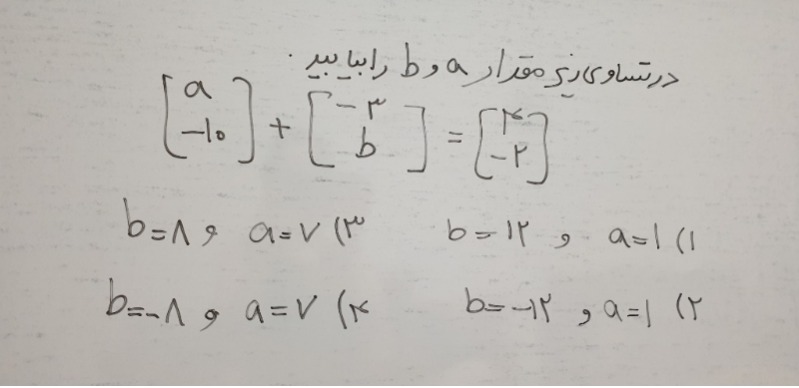 در تساوی زیر مقدار a و b را بیابید.
[a -۱۰] + [-۳ b] = [۴ -۲]
۱) a=۱ و b=۱۲ ۳) a=۷ و b=۸
۲) a=۱ و b=-۱۲ ۴) a=۷ و b=-۸